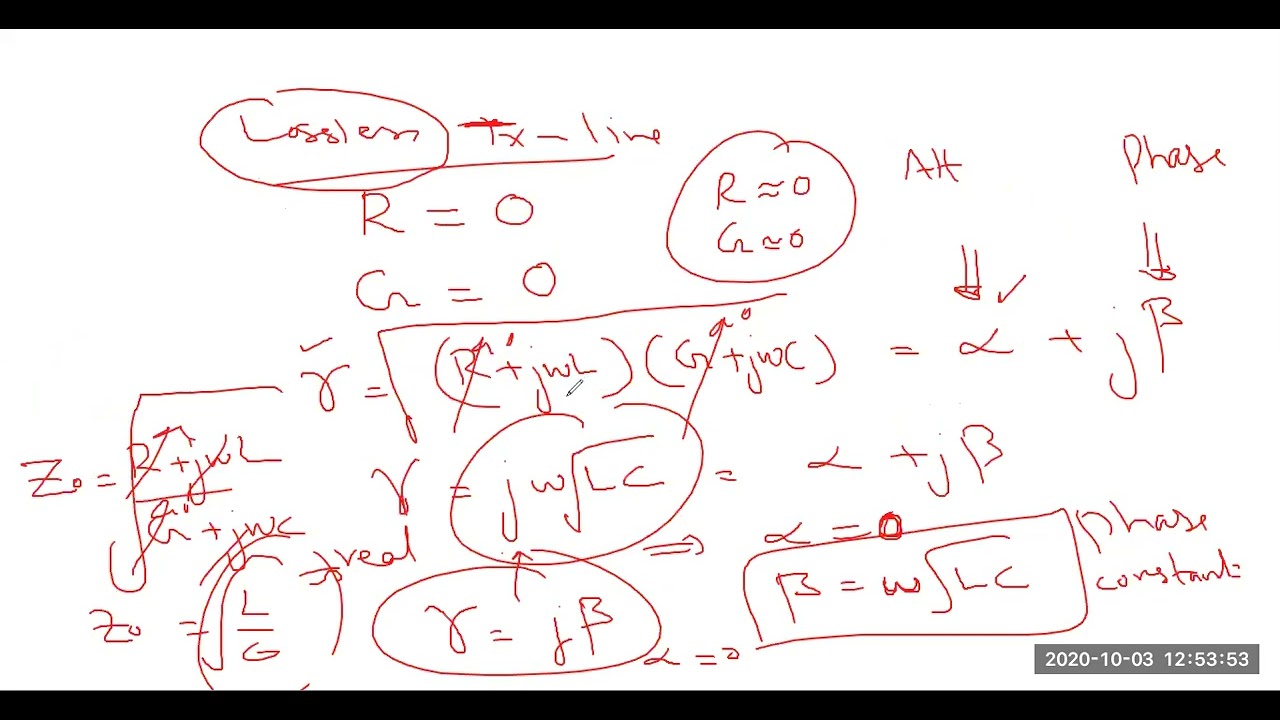 Lossless Tx - line
R = 0
R ≈ 0
G ≈ 0
Att
Phase
G = 0
γ = √(R + jωL) (G + jωC) = α + jβ
Z₀ = √R + jωL / G + jωC
γ = jω√LC = α + jβ
→ real
⇒ α = 0
β = ω√LC
phase constant
Z₀ = √L/C
γ = jβ
α = 0
2020-10-03 12:53:53